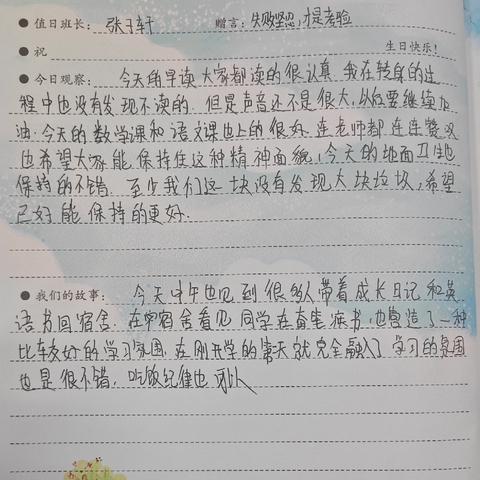 ● 值日班长： 张子轩 赠言：失败坚忍，才是考验
● 祝 生日快乐！
● 今日观察： 今天的早读大家都读的很认真，我在转身的过
程中也没有发现不读的。但是声音还不是很大，以后要继续加
油。今天的数学课和语文课也上的很好。连老师都连连赞叹
也希望大家能保持住这种精神面貌，今天的地面卫生也
保持的不错。至少我们这一块没有发现大块垃圾，希望
已好能保持的更好。
● 我们的故事： 今天中午也见到很多人带着成长日记和英
语书回宿舍。在宿舍看见同学在奋笔疾书，也营造了一种
比较好的学习氛围。在刚开学的第天就完全融入了学习的氛围
也是很不错，吃饭纪律也可以